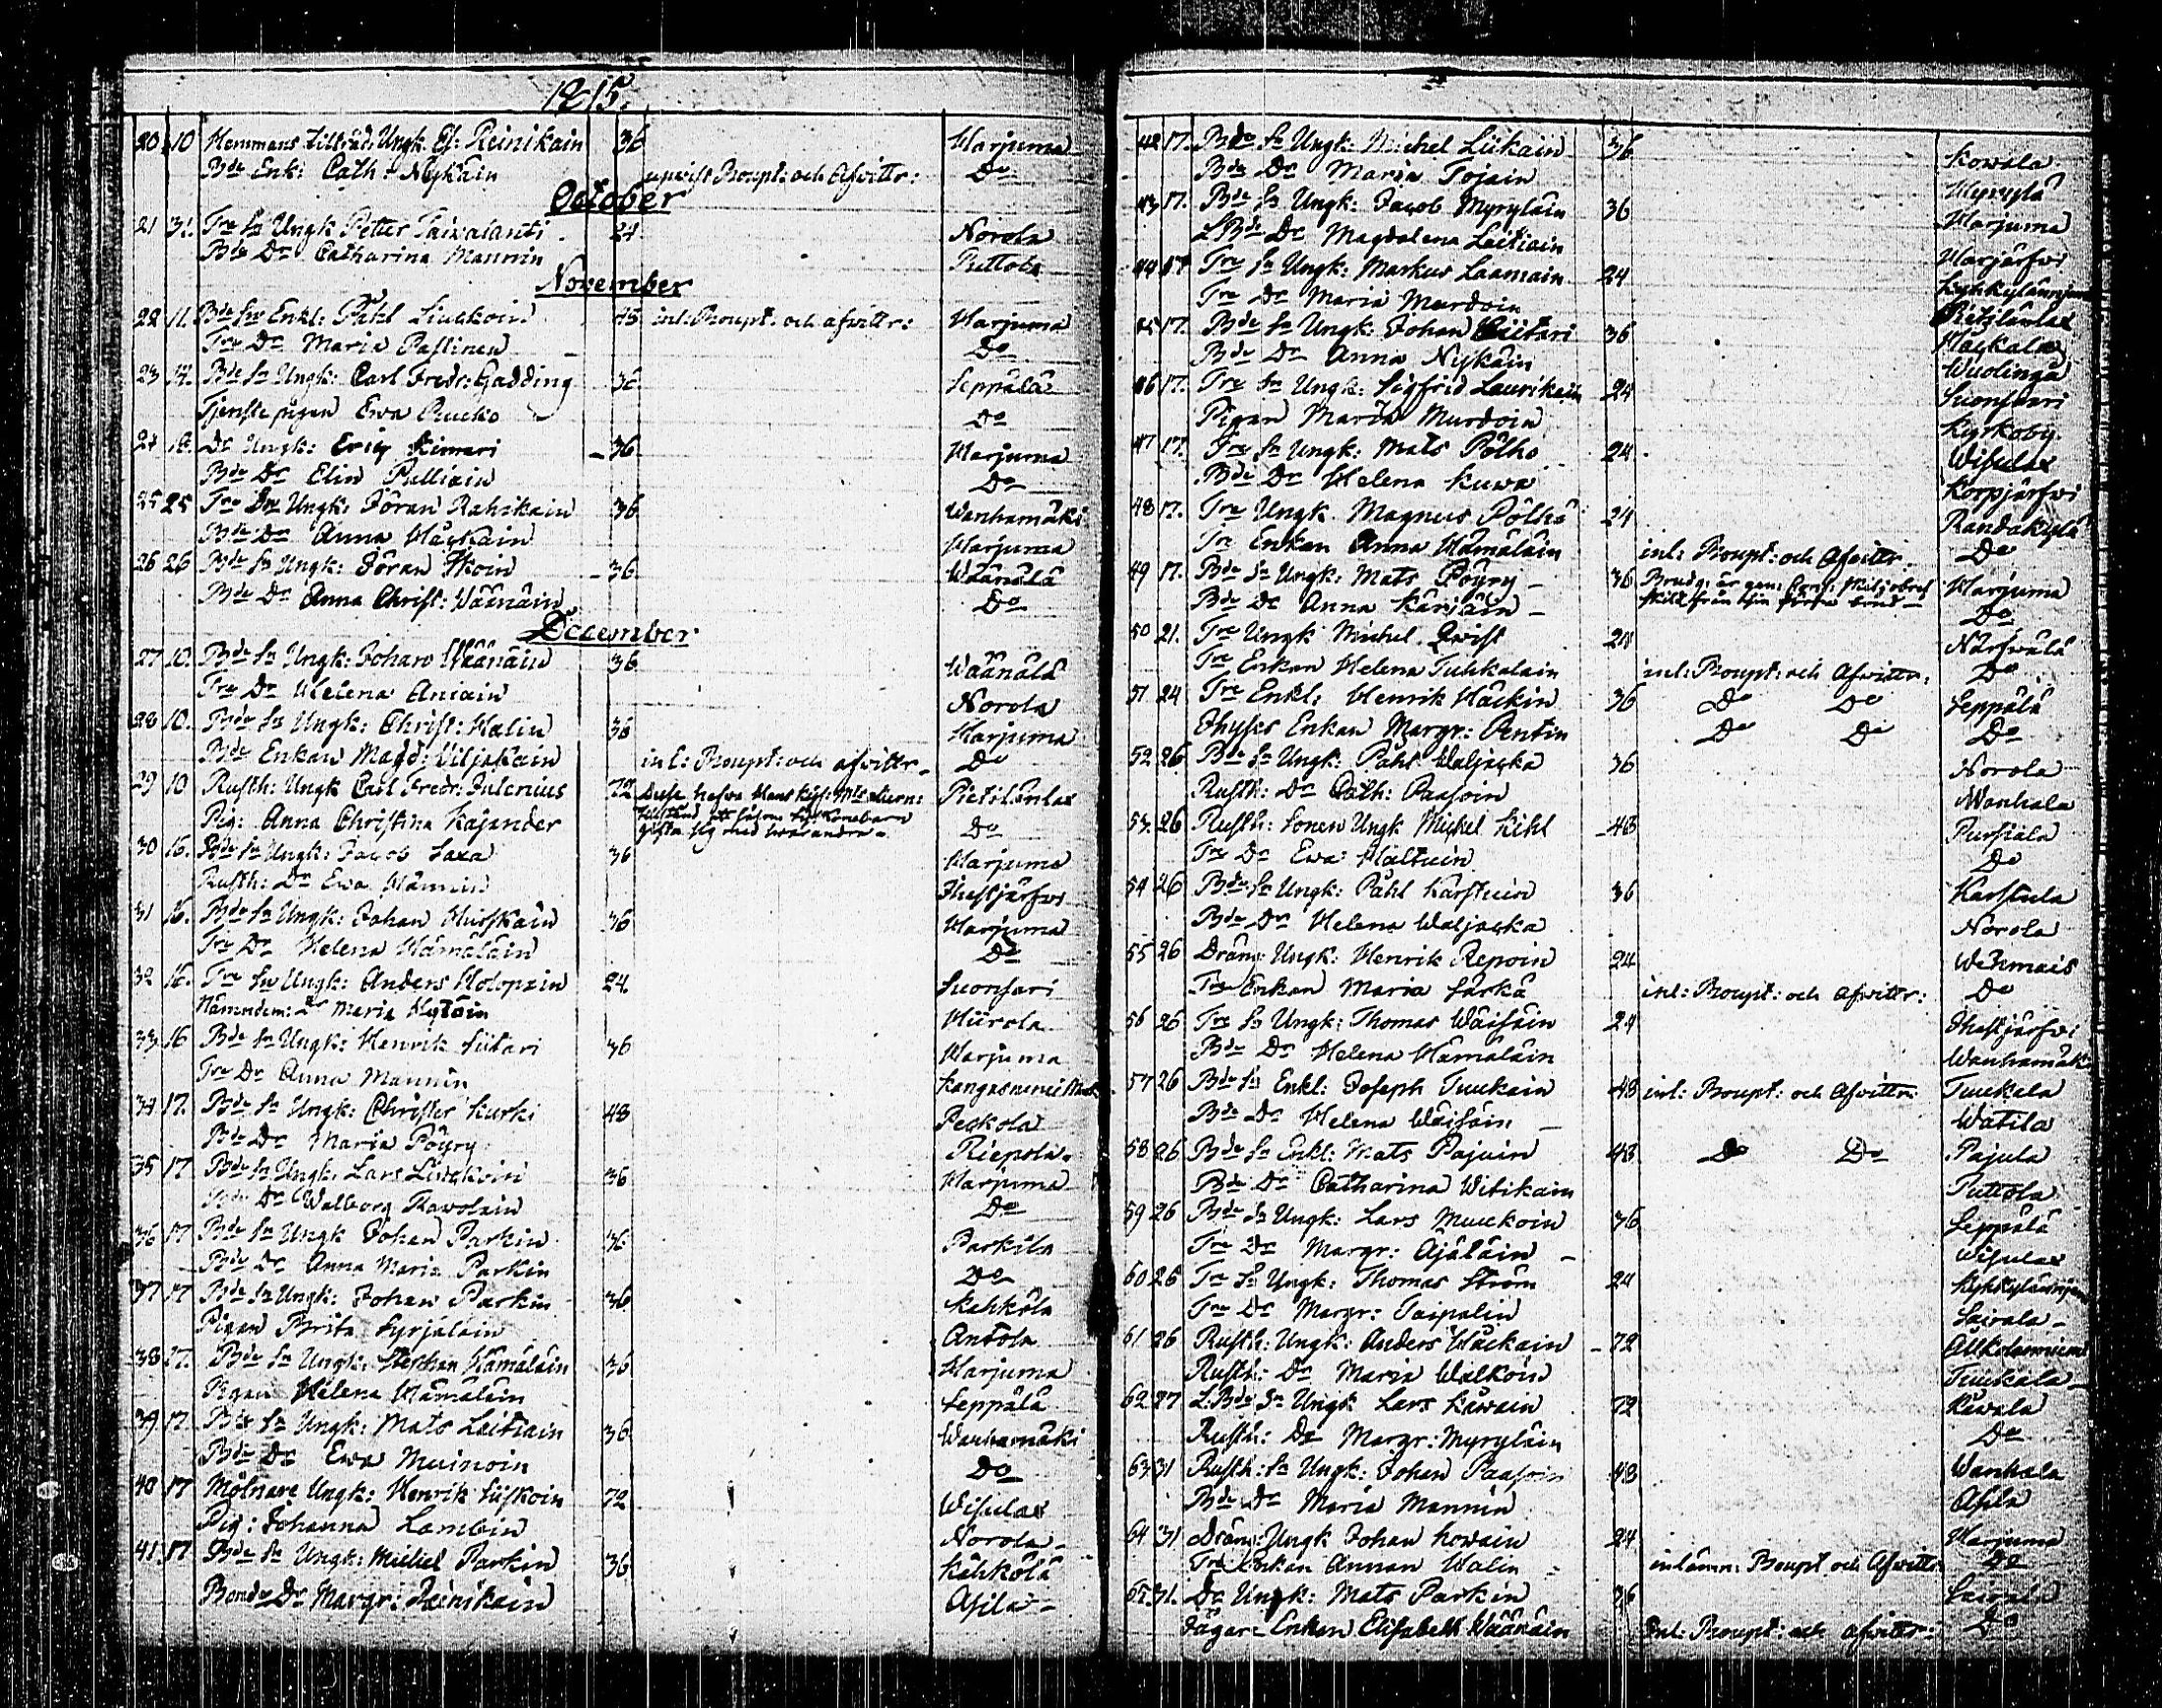 1815.
20 10 Hemmans tillträd: Ungk Es: Reinikain 36 Harjuma
Bde Enk: Cath: Nykäin upvist Boupt: och Afvittr: Do
October
21 31. Tre Sn Ungk Petter Taiwalanti 24 Norola
Bde Dr Catharina Mannin Puttola
November
22 11. Bde Sn Enkl: Påhl Liuckoin 45 inl: Boupt: och afvittr: Harjuma
Tre Dr Maria Passinen Do
23 14. Bde Sn Ungk: Carl Fredr: Gadding 36 Seppälä
Tjenstepigan Ewa Rucko Do
24 18. Do Ungk: Eric Kinnari 36 Harjuma
Bde Dr Elin Pulliain Do
25 25 Tre Sn Ungk: Jöran Rahikain 36 Wanhamäki
Bde Dr Anna Häckäin Harjuma
26 26 Bde Sn Ungk: Jöran Ikoin 36 Wäänälä
Bde Dr Anna Christ: Wäänäin Do
December
27 10. Bde Sn Ungk: Johan Wäänäin 36 Wäänälä
Tre Dr Helena Aniain Norola
28 10. Bde Sn Ungk: Christ: Halin 36 Harjuma
Bde Enkan Magd: Viljakain inl: Boupt: och afvittr Do
29 10 Rusth: Ungk Carl Fredr: Julenius 72 Dessa hafva Hans Kejs: Mts Pietilänlax
Pig: Anna Christina Kajander tillstånd att såsom syskonebarn Do
gifta sig med hvarandra
30 16. Bde Sn Ungk: Jacob Saxa 36 Harjuma
Rusth: Dr Ewa Männin Ihastjärfvi
31 16. Bde Sn Ungk: Johan Hurskain 36 Harjuma
Tre Dr Helena Hämäläin Do
32 16. Tre Sn Ungk: Anders Holopain 24. Suonsari
Nämndem: Dr Maria Hytöin Hiirola
33 16 Bde Sn Ungk: Henrik Siitari 36 Harjuma
Tre Dr Anna Mannin Kangasniemi
34 17. Bde Sn Ungk: Christer Kurki 48 Peckola
Bde Dr Maria Pöyry Riepola
35 17 Bde Sn Ungk: Lars Liuckoin 36 Harjuma
Bde Dr Walborg Rawolain Do
36 17 Bde Sn Ungk Johan Parkin 36 Parkila
Bde Dr Anna Maria Parkin Do
37 17 Bde Sn Ungk: Johan Parkin 36 Kähkölä
Pigan Brita Syrjäläin Anttola
38 17. Bde Sn Ungk: Stephan Hämäläin 36 Harjuma
Pigan Helena Hämäläin Seppälä
39 17. Bde Sn Ungk: Mats Laitiain 36 Wanhamäki
Bde Dr Ewa Muinoin Do
40 17 Mölnare Ungk: Henrik Siiskoin 72 Wisulax
Pig: Johanna Lambin Norola
41 17 Bde Sn Ungk: Michel Parkin 36 Kähkölä
Bonde Dr Margr: Reinikain Asila
42 17. Bde Sn Ungk: Michel Liikain 36 Kowala
Bde Dr Maria Tojain Myrylä
43 17. Bde Sn Ungk: Jacob Myryläin 36 Harjuma
LBde Dr Magdalena Laitiain Harjärfvi
44 17 Tre Sn Ungk: Markus Laamain 24 Kyhkyläniemi
Tre Dr Maria Murdoin Pietilänlax
45 17. Bde Sn Ungk: Johan Siitari 36 Häckälä
Bde Dr Anna Nykäin Wuolinga
46 17. Tre Sn Ungk: Sigfrid Laurikain 24 Suonsari
Pigan Maria Murdoin Kyrkoby
47 17. Tre Sn Ungk: Mats Pölhö 24 Wisulax
Bde Dr Helena Kuwa Korpjärfvi
48 17. Tre Ungk Magnus Pölhö 24 Randakylä
Tre Enkan Anna Hämäläin inl: Boupt: och Afvittr. Do
49 17. Bde Sn Ungk: Mats Pöyry 36 Harjuma
Bde Dr Anna Kärjäin Do
50 21. Tre Ungk Michel Qwist 24 Närfwälä
Tre Enkan Helena Tuhkalain inl: Boupt: och Afvittr: Do
51 24 Tre Enkl: Henrik Häckin 36 Do Do Seppälä
Ihyses Enkan Margr: Pentin Do Do Do
52 26 Bde Sn Ungk: Påhl Waljacka 36 Norola
Rusth: Dr Cath: Paasoin Wanhala
53 26 Rusth: Sonen Ungk Michel Kihl 48 Pursiala
Tre Dr Ewa Haltuin Do
54 26 Bde Sn Ungk: Påhl Karstuin 36 Karstula
Bde Dr Helena Waljacka Norola
55 26 Dräng Ungk: Henrik Repoin 24 Wehmais
Tre Enkan Maria Särkä inl: Boupt: och Afvittr: Do
56 26 Tre Sn Ungk: Thomas Wäisäin 24 Ihastjärfvi
Bde Dr Helena Hämäläin Wanhamäki
57 26 Bde Sn Enkl: Joseph Tuukain 48 inl: Boupt: och Afvittr: Tuukala
Bde Dr Helena Wäisäin Watila
58 26 Bde Sn Enkl: Mats Pajuin 48 Do Do Pajula
Bde Dr Catharina Witikain Puttola
59 26 Bde Sn Ungk: Lars Muckoin 36 Seppälä
Tre Dr Margr: Ajäläin Wisulax
60 26 Tre Sn Ungk: Thomas Ström 24 Kyhkyläniemi
Tre Dr Margr: Taipalin Sairala
61 26 Rusth: Ungk: Anders Häckäin 72 Allkolanniemi
Rusth: Dr Maria Walkoin Tuukala
62 27 L.Bde Sn Ungk Lars Käwain 72 Käwälä
Rusth: Dr Margr: Myryläin Do
63 31 Rusth: Sn Ungk: Johan Paasoin 48 Wanhala
Bde Dr Maria Mannin Asila
64 31 Dräng Ungk Johan Howain 24 Harjuma
Tre Enkan Annan Walin inlämn: Boupt och Afvittr Do
65 31. Do Ungk: Mats Parkin 36 Sairala
Jägar Enkan Elisabeth Wäänäin Inl: Boupt: och afvittr: Do